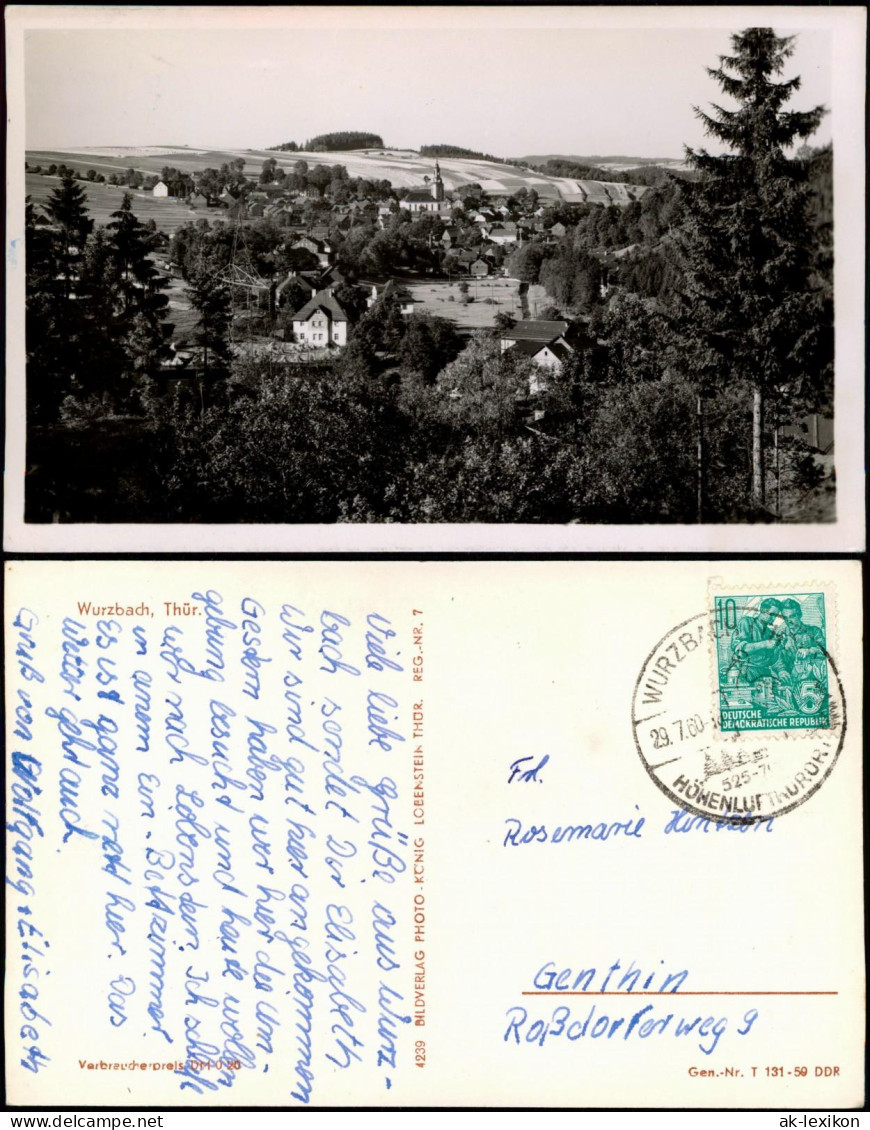 Wurzbach, Thür.
Viele liebe Grüße aus Wurz-
bach sendet Dir Elisabeth
Wir sind gut hier angekommen
Gestern haben wir hier die Um-
gebung besucht und heute wollen
wir nach Lobenstein. Ich schlafe
in einem Ein-Bettzimmer
Es ist ganz nett hier. Das
Wetter geht auch.
Gruß von Wolfgang + Elisabeth
Verbraucherpreis DM 0.20
4239 BILDVERLAG PHOTO-KÖNIG LOBENSTEIN THÜR. REG.-NR. 7
WURZBACH
29.7.60
525-
HÖHENLUFTKURORT
10
5
DEUTSCHE
DEMOKRATISCHE REPUBLIK
Frl.
Rosemarie
Genthin
Roßdorferweg 9
Gen.-Nr. T 131-59 DDR
ak-lexikon